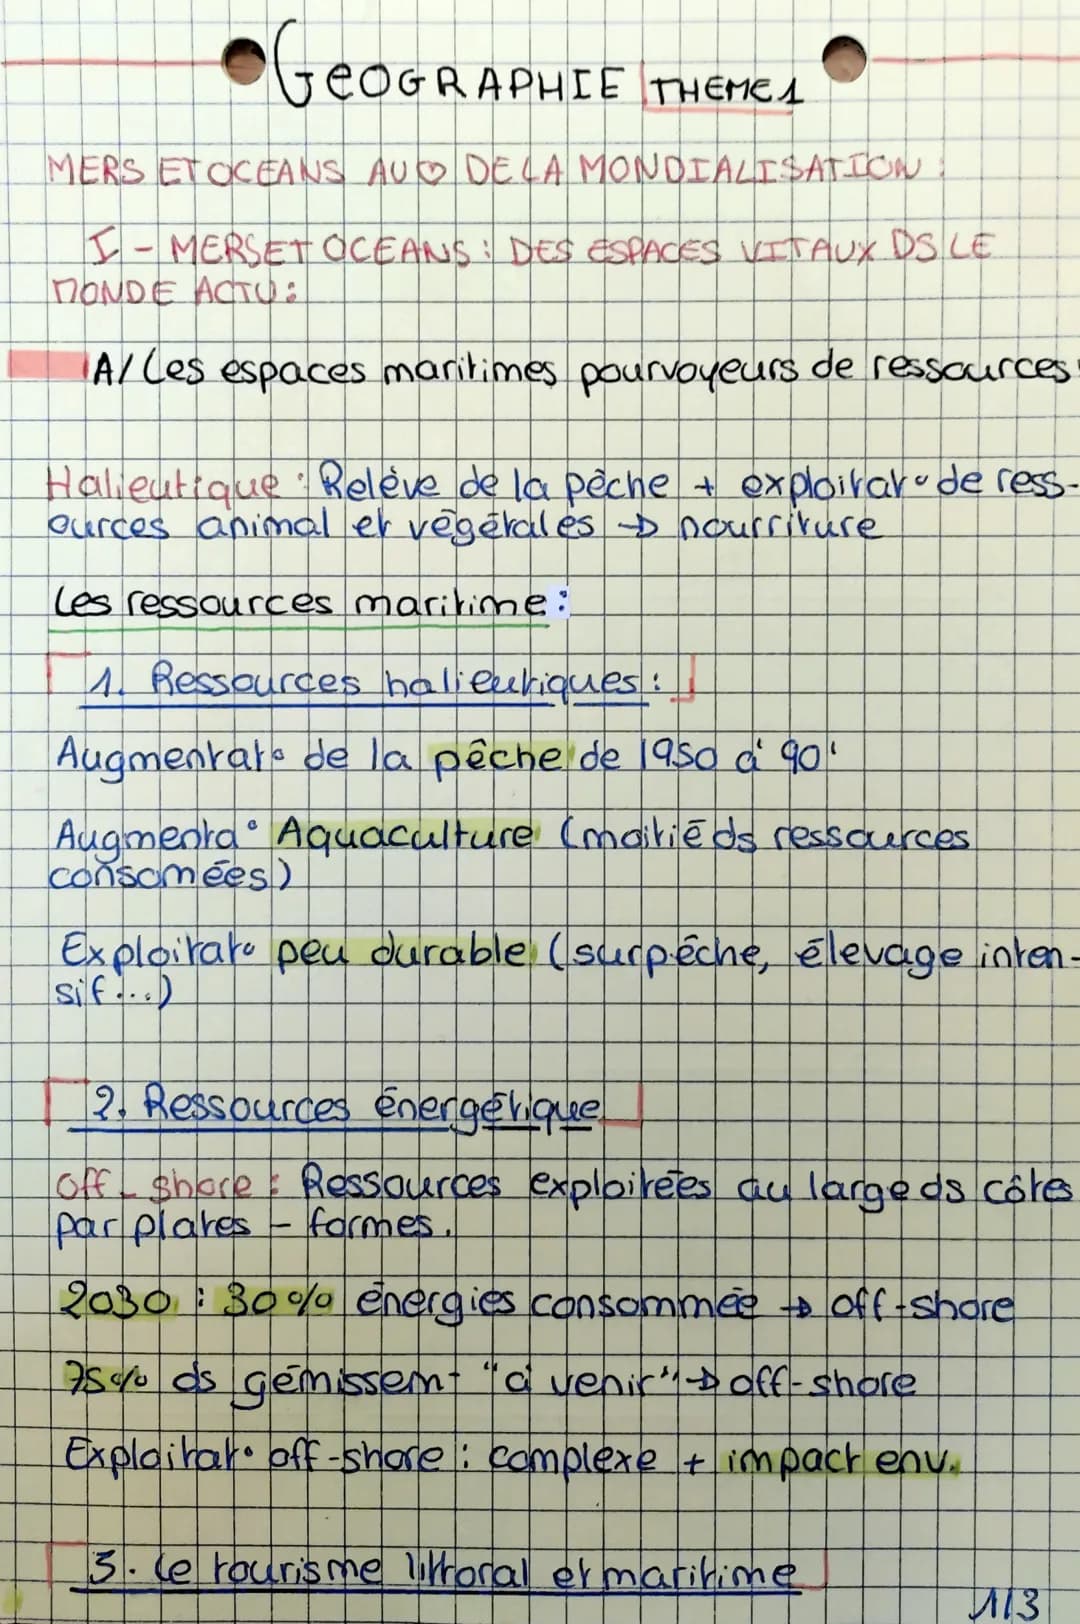 GEOGRAPHIE THEME 1
MERS ET OCEANS AU ♡ DE LA MONDIALISATION :
I - MERS ET OCEANS : DES ESPACES VITAUX DS LE
MONDE ACTU :
A/ Les espaces maritimes pourvoyeurs de ressources :
Halieutique : Relève de la pêche + exploitat° de ress-
ources animal et végétales → nourriture
Les ressources maritime :
1. Ressources halieutiques :
Augmentat° de la pêche de 1950 à 90'
Augmenta° Aquaculture (moitié ds ressources
consomées)
Exploitat° peu durable (surpêche, élevage inten-
sif...)
2. Ressources énergétique
off-shore : Ressources exploitées au large ds côtes
par plates - formes.
2030 : 30% énergies consommée → off-shore
75% ds gémissemt "à venir" → off-shore
Exploitat° off-shore : complexe + impact env.
3. Le tourisme littoral et maritime
1/3